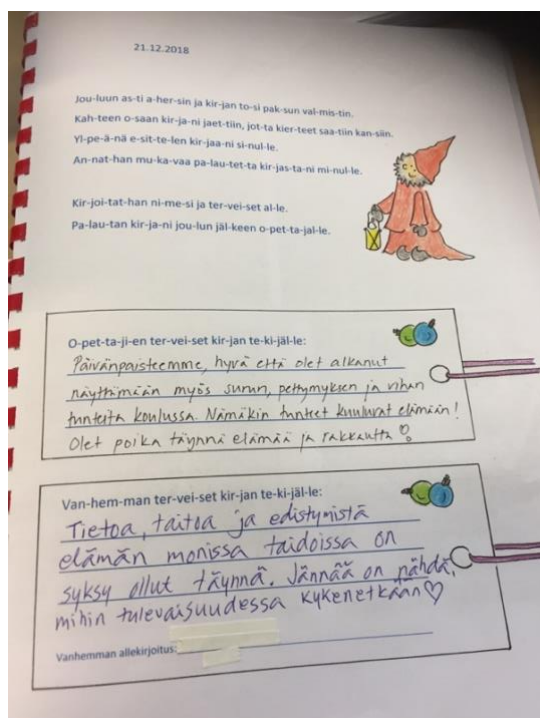 21.12.2018
Jou-luun as-ti a-her-sin ja kir-jan to-si pak-sun val-mis-tin.
Kah-teen o-saan kir-ja-ni jaet-tiin, jot-ta kier-teet saa-tiin kan-siin.
Yl-pe-ä-nä e-sit-te-len kir-jaa-ni si-nul-le.
An-nat-han mu-ka-vaa pa-lau-tet-ta kir-jas-ta-ni mi-nul-le.
Kir-joi-tat-han ni-me-si ja ter-vei-set al-le.
Pa-lau-tan kir-ja-ni jou-lun jäl-keen o-pet-ta-jal-le.
O-pet-ta-ji-en ter-vei-set kir-jan te-ki-jäl-le:
Päivänpaisteemme, hyvä että olet alkanut
näyttämään myös surun, pettymyksen ja vihan
tunteita koulussa. Nämäkin tunteet kuuluvat elämään!
Olet poika täynnä elämää ja rakkautta ♡
Van-hem-man ter-vei-set kir-jan te-ki-jäl-le:
Tietoa, taitoa ja edistymistä
elämän monissa taidoissa on
syksy ollut täynnä. Jännää on nähdä,
mihin tulevaisuudessa kykenetkään♡
Vanhemman allekirjoitus: